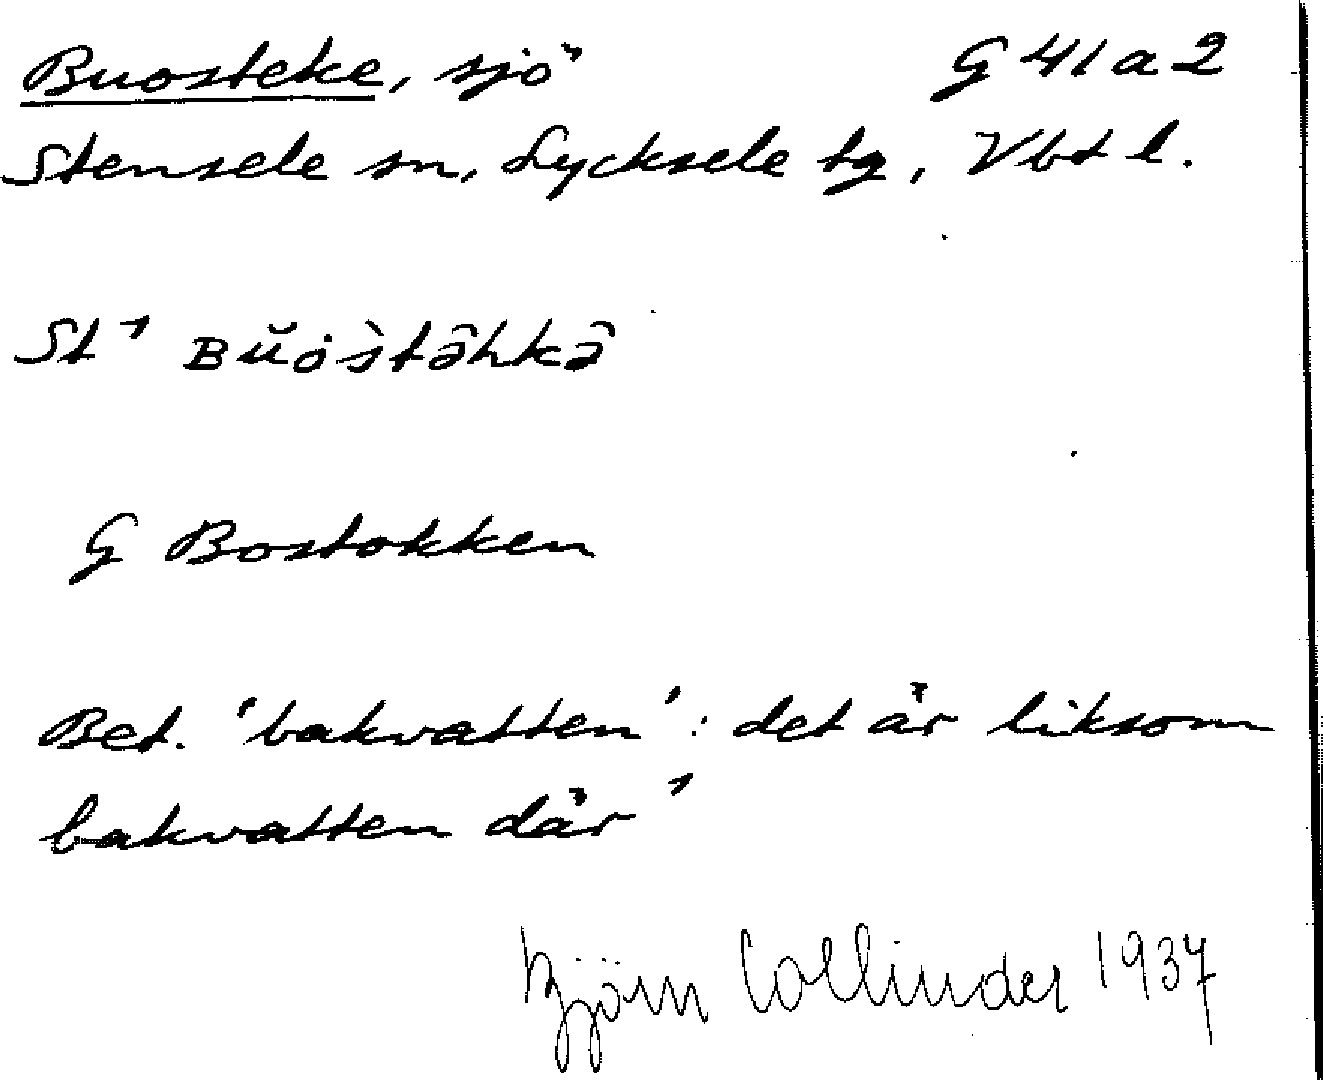 Buosteke, sjö G 41 a 2
Stensele sn, Lycksele tg, Vbt l.
St⁷ Bŭȯs̀tâhkâ
G Bostokken
Bet. 'bakvatten': det är liksom
bakvatten där'
Björn Collinder 1937